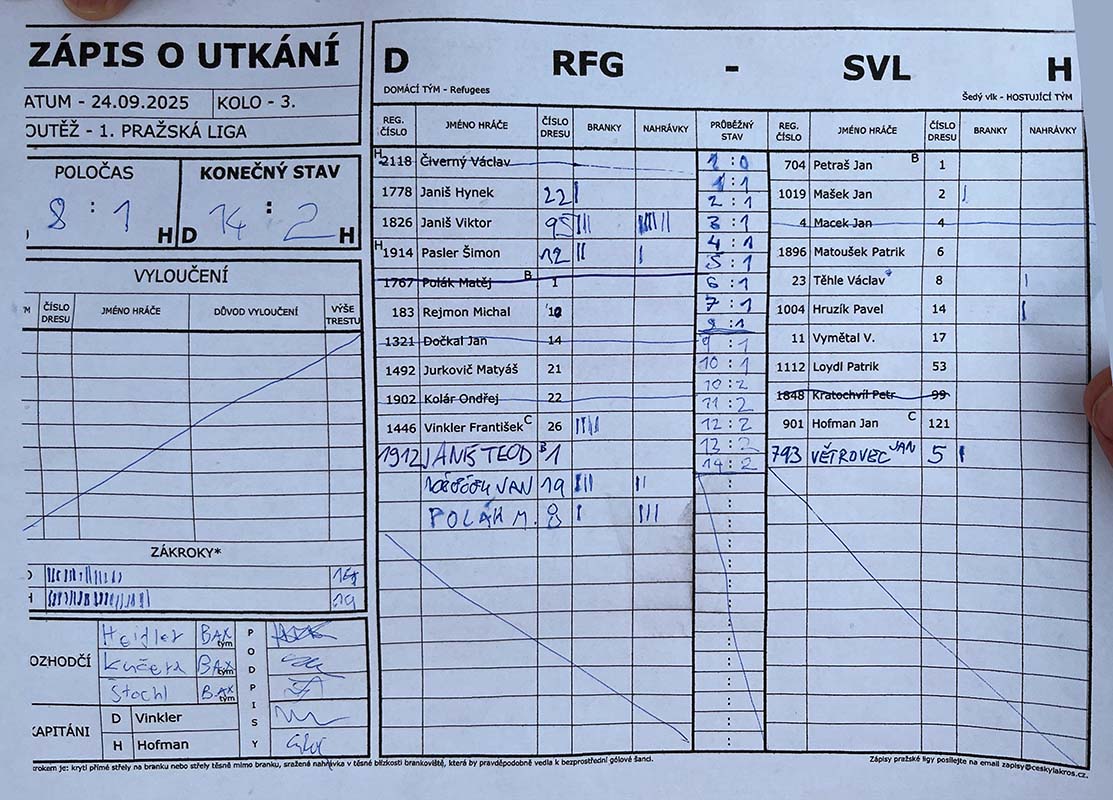 ZÁPIS O UTKÁNÍ
ATUM - 24.09.2025 KOLO - 3.
OUTĚŽ - 1. PRAŽSKÁ LIGA
POLOČAS KONEČNÝ STAV
8 : 1 H D 14 : 2 H
VYLOUČENÍ
ČÍSLO DRESU JMÉNO HRÁČE DŮVOD VYLOUČENÍ VÝŠE TRESTU
ZÁKROKY*
H 19
OZHODČÍ
Heidler BAX tým
Kučera BAX tým
Štochl BAX tým
PODPISY
KAPITÁNI
D Vinkler
H Hofman
D RFG - SVL H
DOMÁCÍ TÝM - Refugees Šedý vlk - HOSTUJÍCÍ TÝM
REG. ČÍSLO JMÉNO HRÁČE ČÍSLO DRESU BRANKY NAHRÁVKY PRŮBĚŽNÝ STAV REG. ČÍSLO JMÉNO HRÁČE ČÍSLO DRESU BRANKY NAHRÁVKY
H 2118 Čiverný Václav 1:0 704 Petraš Jan B 1
1:1
1778 Janiš Hynek 22 2:1 1019 Mašek Jan 2
1826 Janiš Viktor 95 3:1 4 Macek Jan 4
H 1914 Pasler Šimon 12 4:1 1896 Matoušek Patrik 6
5:1
1767 Polák Matěj B 1 6:1 23 Těhle Václav 8
183 Rejmon Michal 7:1 1004 Hruzík Pavel 14
8:1
1321 Dočkal Jan 14 9:1 11 Vymětal V. 17
1492 Jurkovič Matyáš 21 10:1 1112 Loydl Patrik 53
10:2
1902 Kolár Ondřej 22 11:2 1848 Kratochvíl Petr 99
1446 Vinkler František C 26 12:2 901 Hofman Jan C 121
1912 JANIŠ TEOD B 1 13:2 793 VĚTROVEC JAN 5
14:2
JAN 19
POLÁK M. 8
krokem je: krytí přímé střely na branku nebo střely těsně mimo branku, sražená nahrávka v těsné blízkosti brankoviště, která by pravděpodobně vedla k bezprostřední gólové šanci.
Zápisy pražské ligy posílejte na email zapisy@ceskylakros.cz.